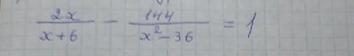 2x/(x+6) - 144/(x²-36) = 1